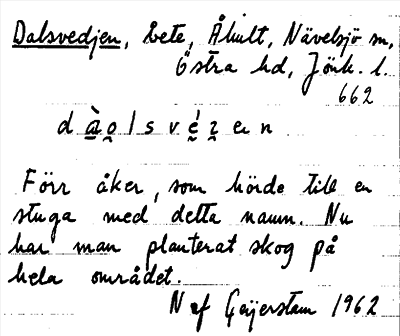 Dalsvedjen, bete, Åhult, Nävelsjö sn,
Östra hd, Jönk. l.
662
d à̲ o̬ l s v é̬ z̬ e n
Förr åker, som hörde till en
stuga med detta namn. Nu
har man planterat skog på
hela området.
N af Geijerstam 1962